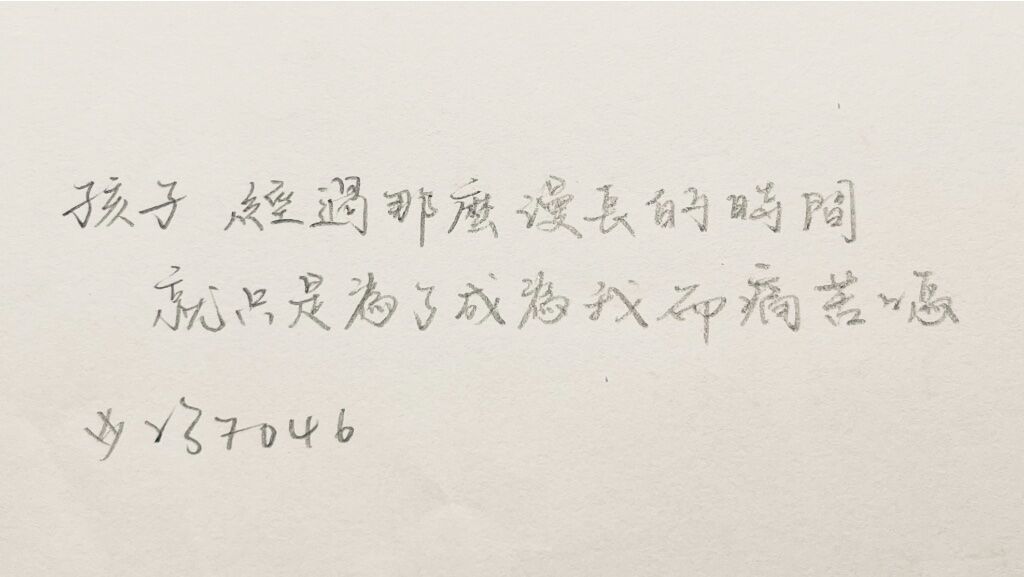 孩子 經過那麼漫長的時間
就只是為了成為我而痛苦嗎
7046